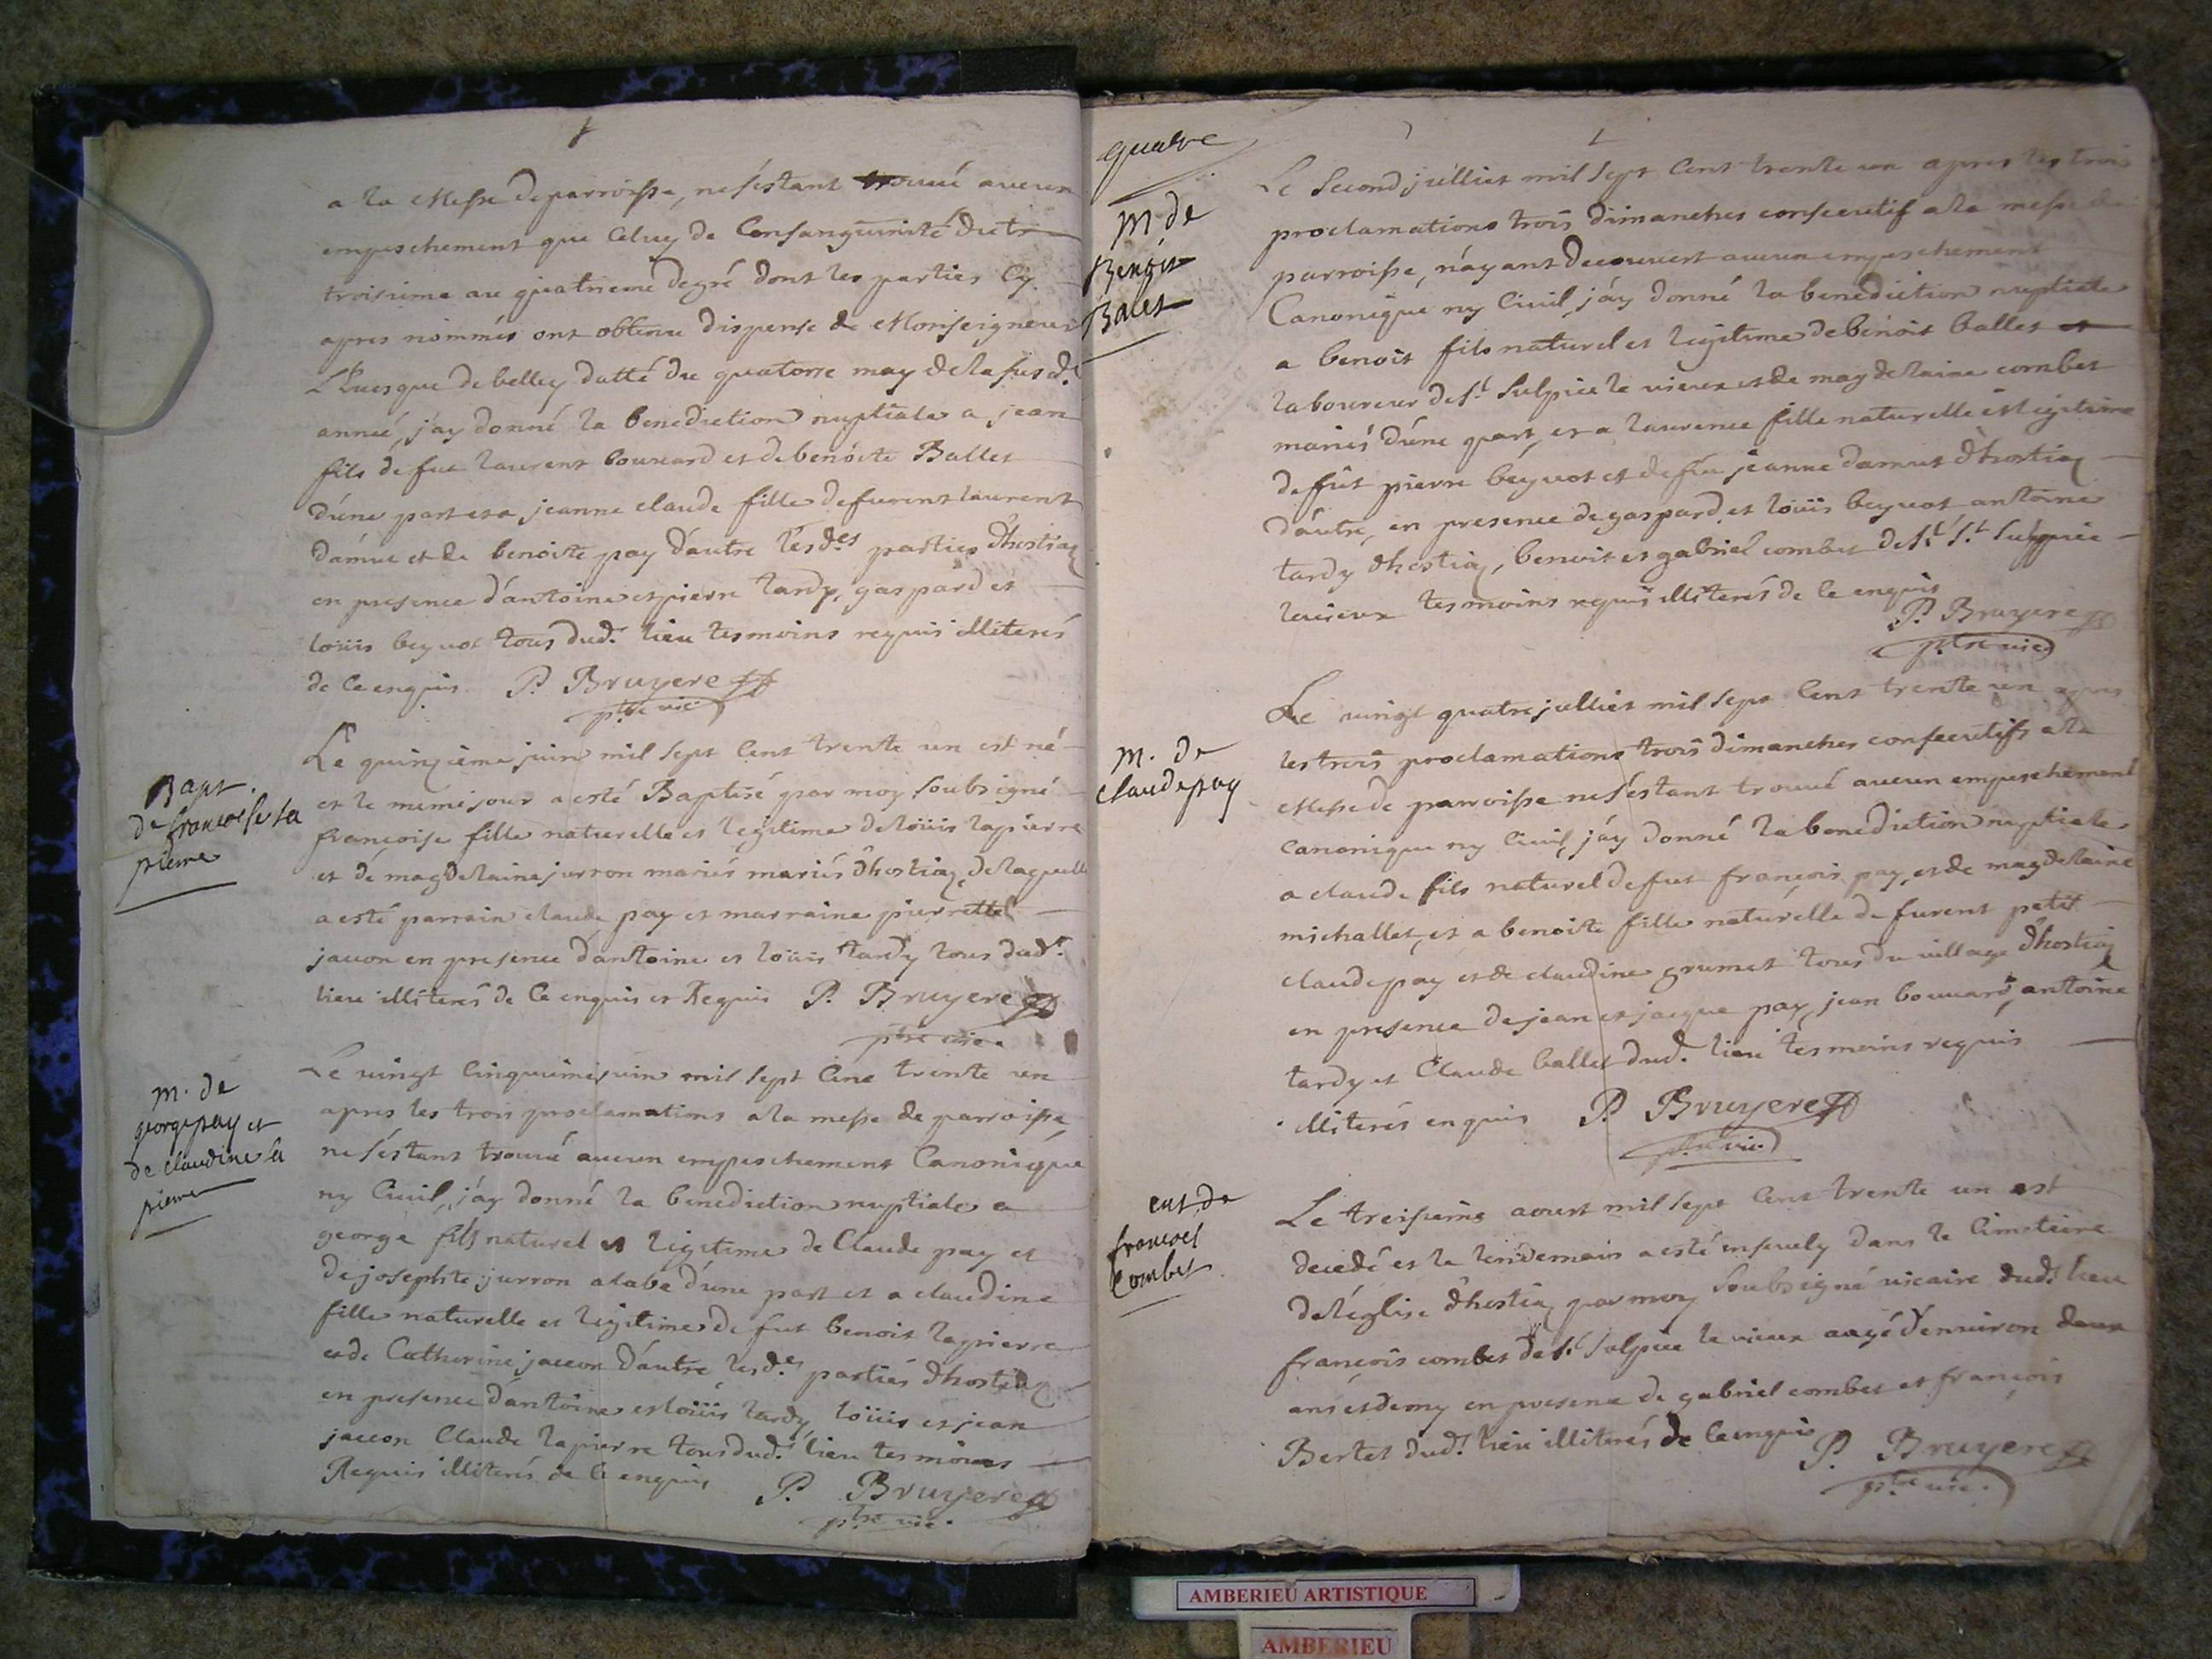 a la Messe de parroisse, ne s'estant trouvé aucun
empeschement que celuy de Consanguinité du tr
troisieme au quatrieme degré dont les parties cy
apres nommés ont obtenu dispense de Monseigneur
L'Evesque de belley datté du quatorse may de la susd.
année, j'ay donné la benediction nuptiale a jean
fils de fut laurent bouvard et de benoite Ballet
d'une part et a jeanne claude fille de furent laurent
damne et de benoite pay d'autre lesd.es parties d'hostiaz
en presence d'antoine et pierre tardy, gaspard et
loüis beyvot tous dud. lieu tesmoins requis illiterés
de ce enquis. P. Bruyere
ptre vic.
Bapt.
de francoise la
pierre
Le quinzieme juin mil sept cent trente un est né
et le meme jour a esté Baptisé par moy soubsigné
françoise fille naturelle et legitime de loüis lapierre
et de magdelaine jurron mariés mariés d'hostiaz, de laquelle
a esté parrain claude pay et marraine pierrette
jacon en presence d'antoine et loüis tardy tous dud.t
lieu illiterés de ce enquis et Requis P. Bruyere
ptre vic.
m. de
george pay et
de claudine la
pierre
Le vingt cinquieme juin mil sept cent trente un
apres les trois proclamations a la messe de parroisse,
ne s'estant trouvé aucun empeschement Canonique
ny Civil, j'ay donné la benediction nuptiale a
george fils naturel et legitime de Claude pay et
de josephte jurron a labe d'une part et a claudine
fille naturelle et legitime de fut benoit lapierre
et de Catherine jacon d'autre, lesd.es parties d'hostiaz
en presence d'antoine et loüis tardy, loüis et jean
jacon Claude lapierre tous dud.t lieu tesmoins
Requis illiterés de ce enquis P. Bruyere
ptre vic.
quatre
m. de
Benoit
Balet
Le second jüilliet mil sept cent trente un apres les trois
proclamations trois dimanches consecutif a la messe de
parroisse, n'ayant decouvert aucun empeschement
Canonique ny Civil, j'ay donné la benediction nuptiale
a benoit fils naturel et legitime de benoit ballet et
laboureur de s.t Sulpice le vieux et de magdelaine combet
mariés d'une part, et a laurence fille naturelle et legitime
de fût pierre beyvot et de fûe jeanne damne d'hostiaz
d'autre, en presence de gaspard et loüis beyvot antoine
tardy d'hostiaz, benoit et gabriel combet de s.t s.t Sulpice
levieux tesmoins requis illiterés de ce enquis
P. Bruyere
ptre vic
m. de
claude pay
Le vingt quatre jullies mil sept cent trente un apres
les trois proclamations trois dimanches consecutifs a la
Messe de parroisse ne s'estant trouvé aucun empeschement
canonique ny Civil, j'ay donné la benediction nuptiale
a claude fils naturel de fut françois pay, et de magdelaine
michallet, et a benoite fille naturelle de furent petit
claude pay et de claudine grumet tous du village d'hostiaz
en presence de jean et jacque pay, jean bouvard, antoine
tardy et Claude ballet dud. lieu tesmoins requis
illiterés enquis P. Bruyere
ptre vic.
ent. de
francoes
Combet
Le treisieme aoust mil sept cent trente un est
decedé et le lendemain a esté ensevely dans le Cimetiere
de l'eglise d'hostiaz par moy soubsigné vicaire dud.t lieu
françois combet de s.t Sulpice le vieux aagé d'environ deux
ans et demy en presence de gabriel combet et françois
Bertet dud.t lieu illiterés de ce enquis P. Bruyere
ptre vic.
AMBERIEU ARTISTIQUE
AMBERIEU